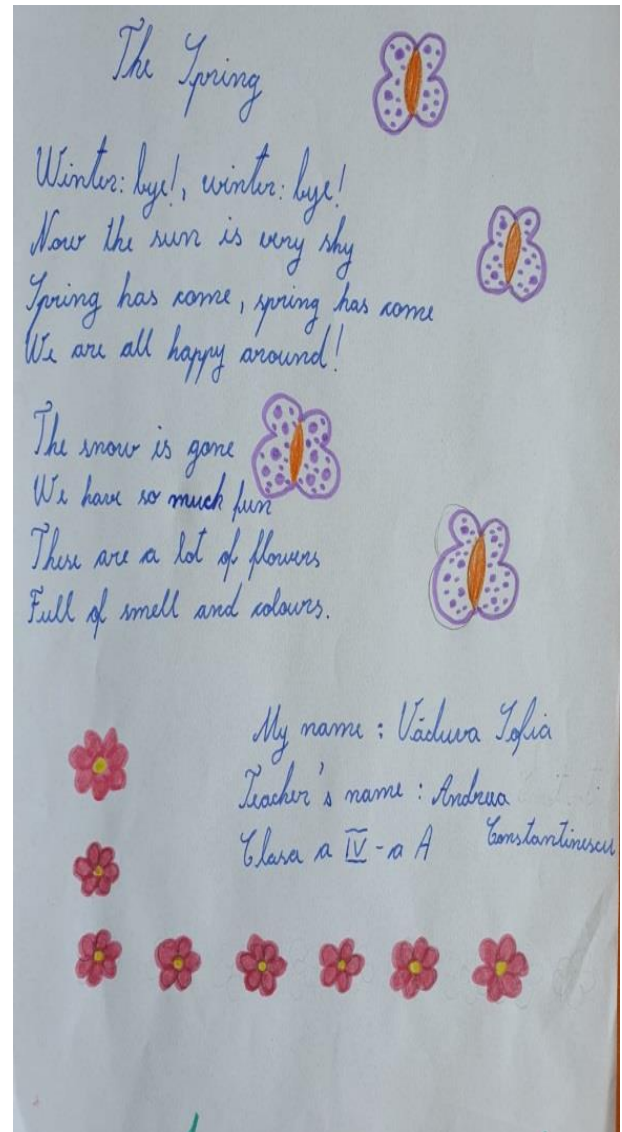 The Spring
Winter: bye!, winter: bye!
Now the sun is very shy
Spring has come, spring has come
We are all happy around!
The snow is gone
We have so much fun
These are a lot of flowers
Full of smell and colours.
My name : Văduva Sofia
Teacher's name : Andreea
Constantinescu
Clasa a IV-a A